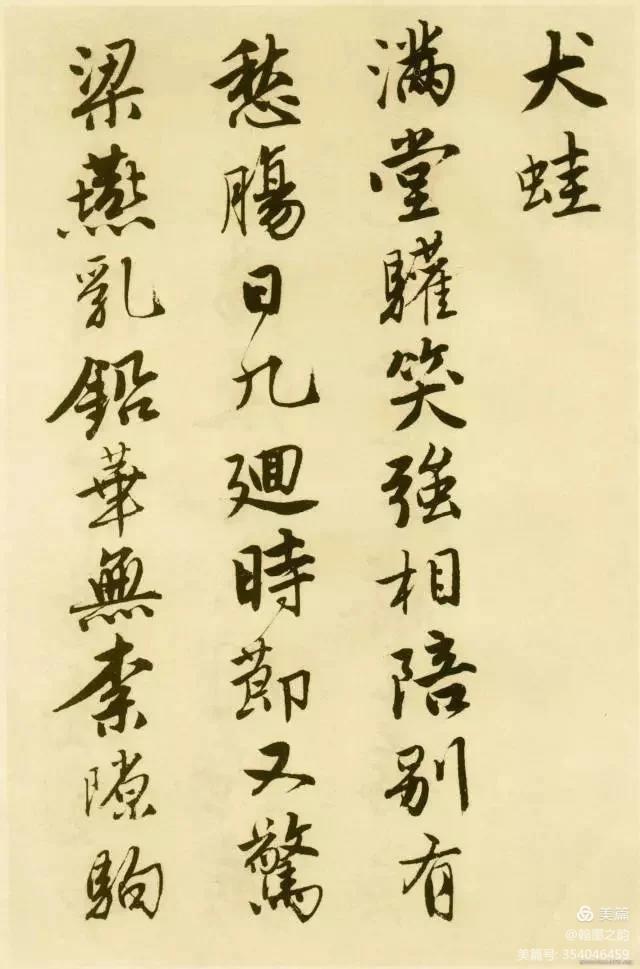 犬蛙
滿堂驩笑強相陪別有
愁腸日九廻時節又驚
梁燕乳鉛華無柰隙駒
美篇
@翰墨之韵
美篇号: 354046459